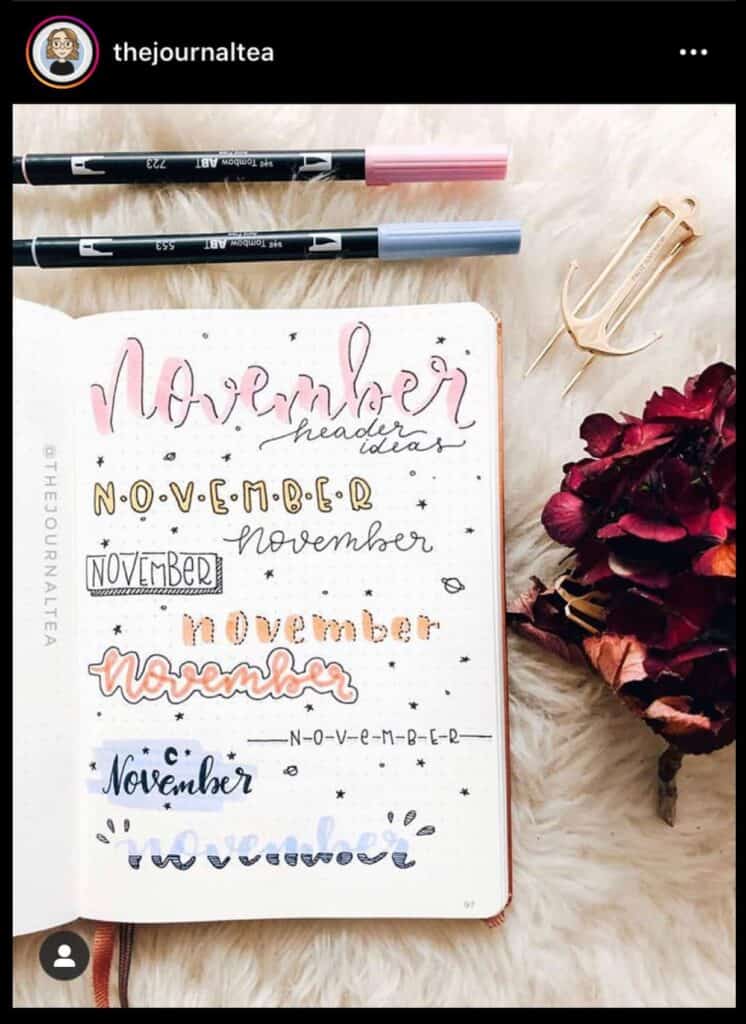 thejournaltea
723 ABT Tombow
553 ABT Tombow
November
header
ideas
N·O·V·E·M·B·E·R
november
NOVEMBER
november
november
—N-O-V-e-M-B-E-R—
November
november
@THEJOURNALTEA
97